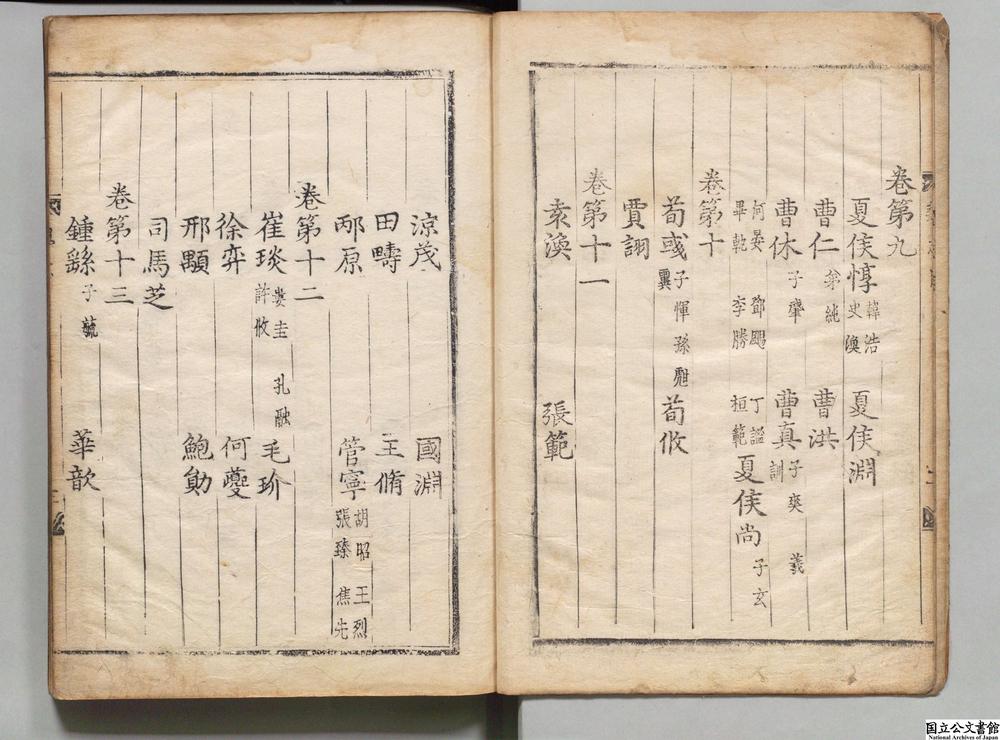 卷第九
夏侯惇 韓浩 史渙 夏侯淵
曹仁 弟純 曹洪
曹休 子肇 曹真 子爽 羲 訓
何晏 鄧颺 丁謐 畢軌 李勝 桓範 夏侯尚 子玄
卷第十
荀彧 子惲 孫甝 霬 荀攸
賈詡
卷第十一
袁渙 張範
涼茂 國淵
田疇 王脩
邴原 管寧 胡昭 王烈 張臶 焦先
卷第十二
崔琰 婁圭 孔融 許攸 毛玠
徐弈 何夔
邢顒 鮑勛
司馬芝
卷第十三
鍾繇 子毓 華歆
国立公文書館
National Archives of Japan